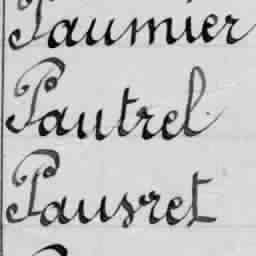 Paumier
Pautrel
Pausret